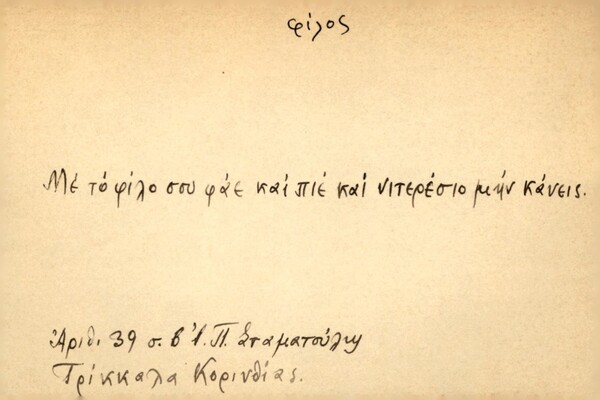 φίλος
Μέ τό φίλο σου φάε καί πιέ καί νιτερέσιο μήν κάνεις.
Ἀριθ. 39 σ. β Ἰ. Π. Σταματούλης
Τρίκκαλα Κορινθίας.